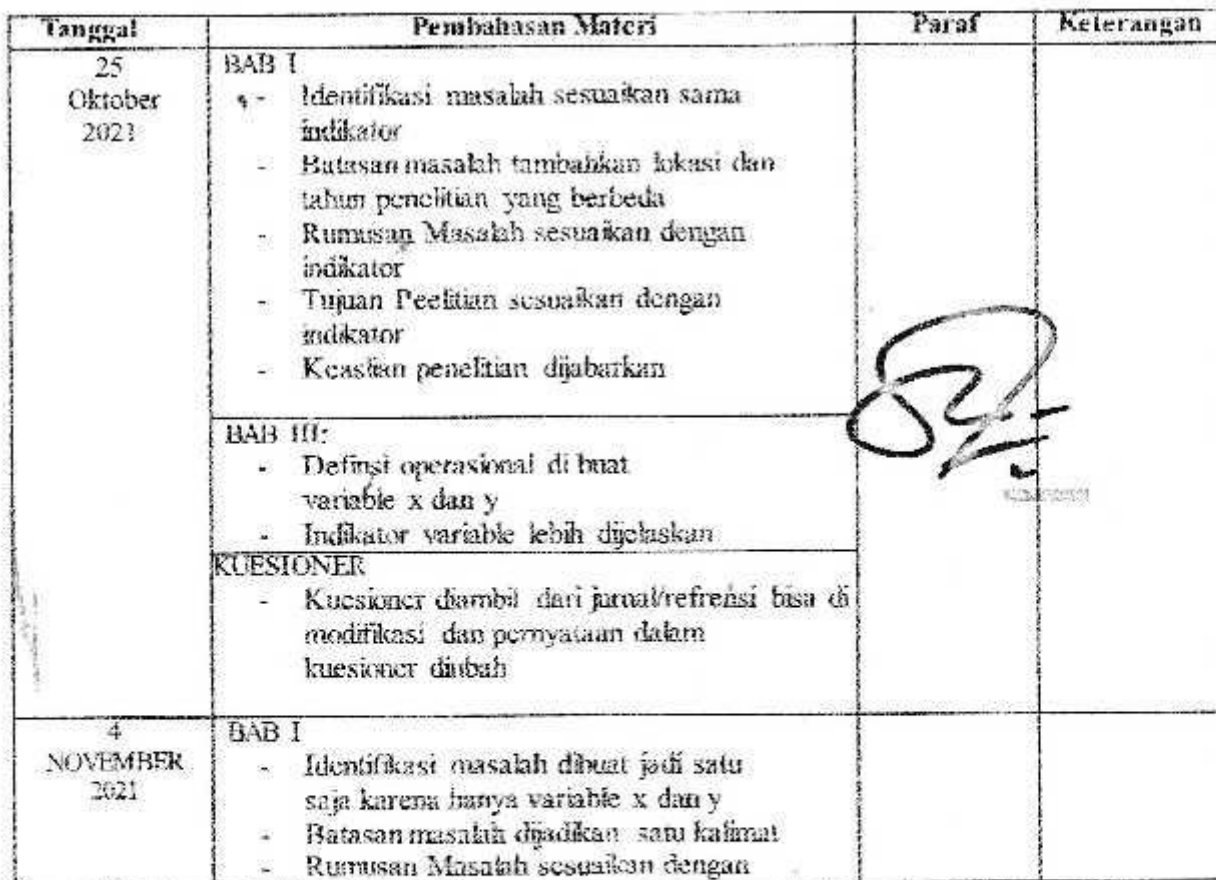 Tanggal Pembahasan Materi Paraf Keterangan
25 Oktober 2021
BAB I
- Identifikasi masalah sesuaikan sama
indikator
- Batasan masalah tambahkan lokasi dan
tahun penelitian yang berbeda
- Rumusan Masalah sesuaikan dengan
indikator
- Tujuan Peelitian sesuaikan dengan
indikator
- Keaslian penelitian dijabarkan
BAB III:
- Definsi operasional di buat
variable x dan y
- Indikator variable lebih dijelaskan
KUESIONER
- Kuesioner diambil dari jurnal/refrensi bisa di
modifikasi dan pernyataan dalam
kuesioner diubah
4 NOVEMBER 2021
BAB I
- Identifikasi masalah dibuat jadi satu
saja karena hanya variable x dan y
- Batasan masalah dijadikan satu kalimat
- Rumusan Masalah sesuaikan dengan